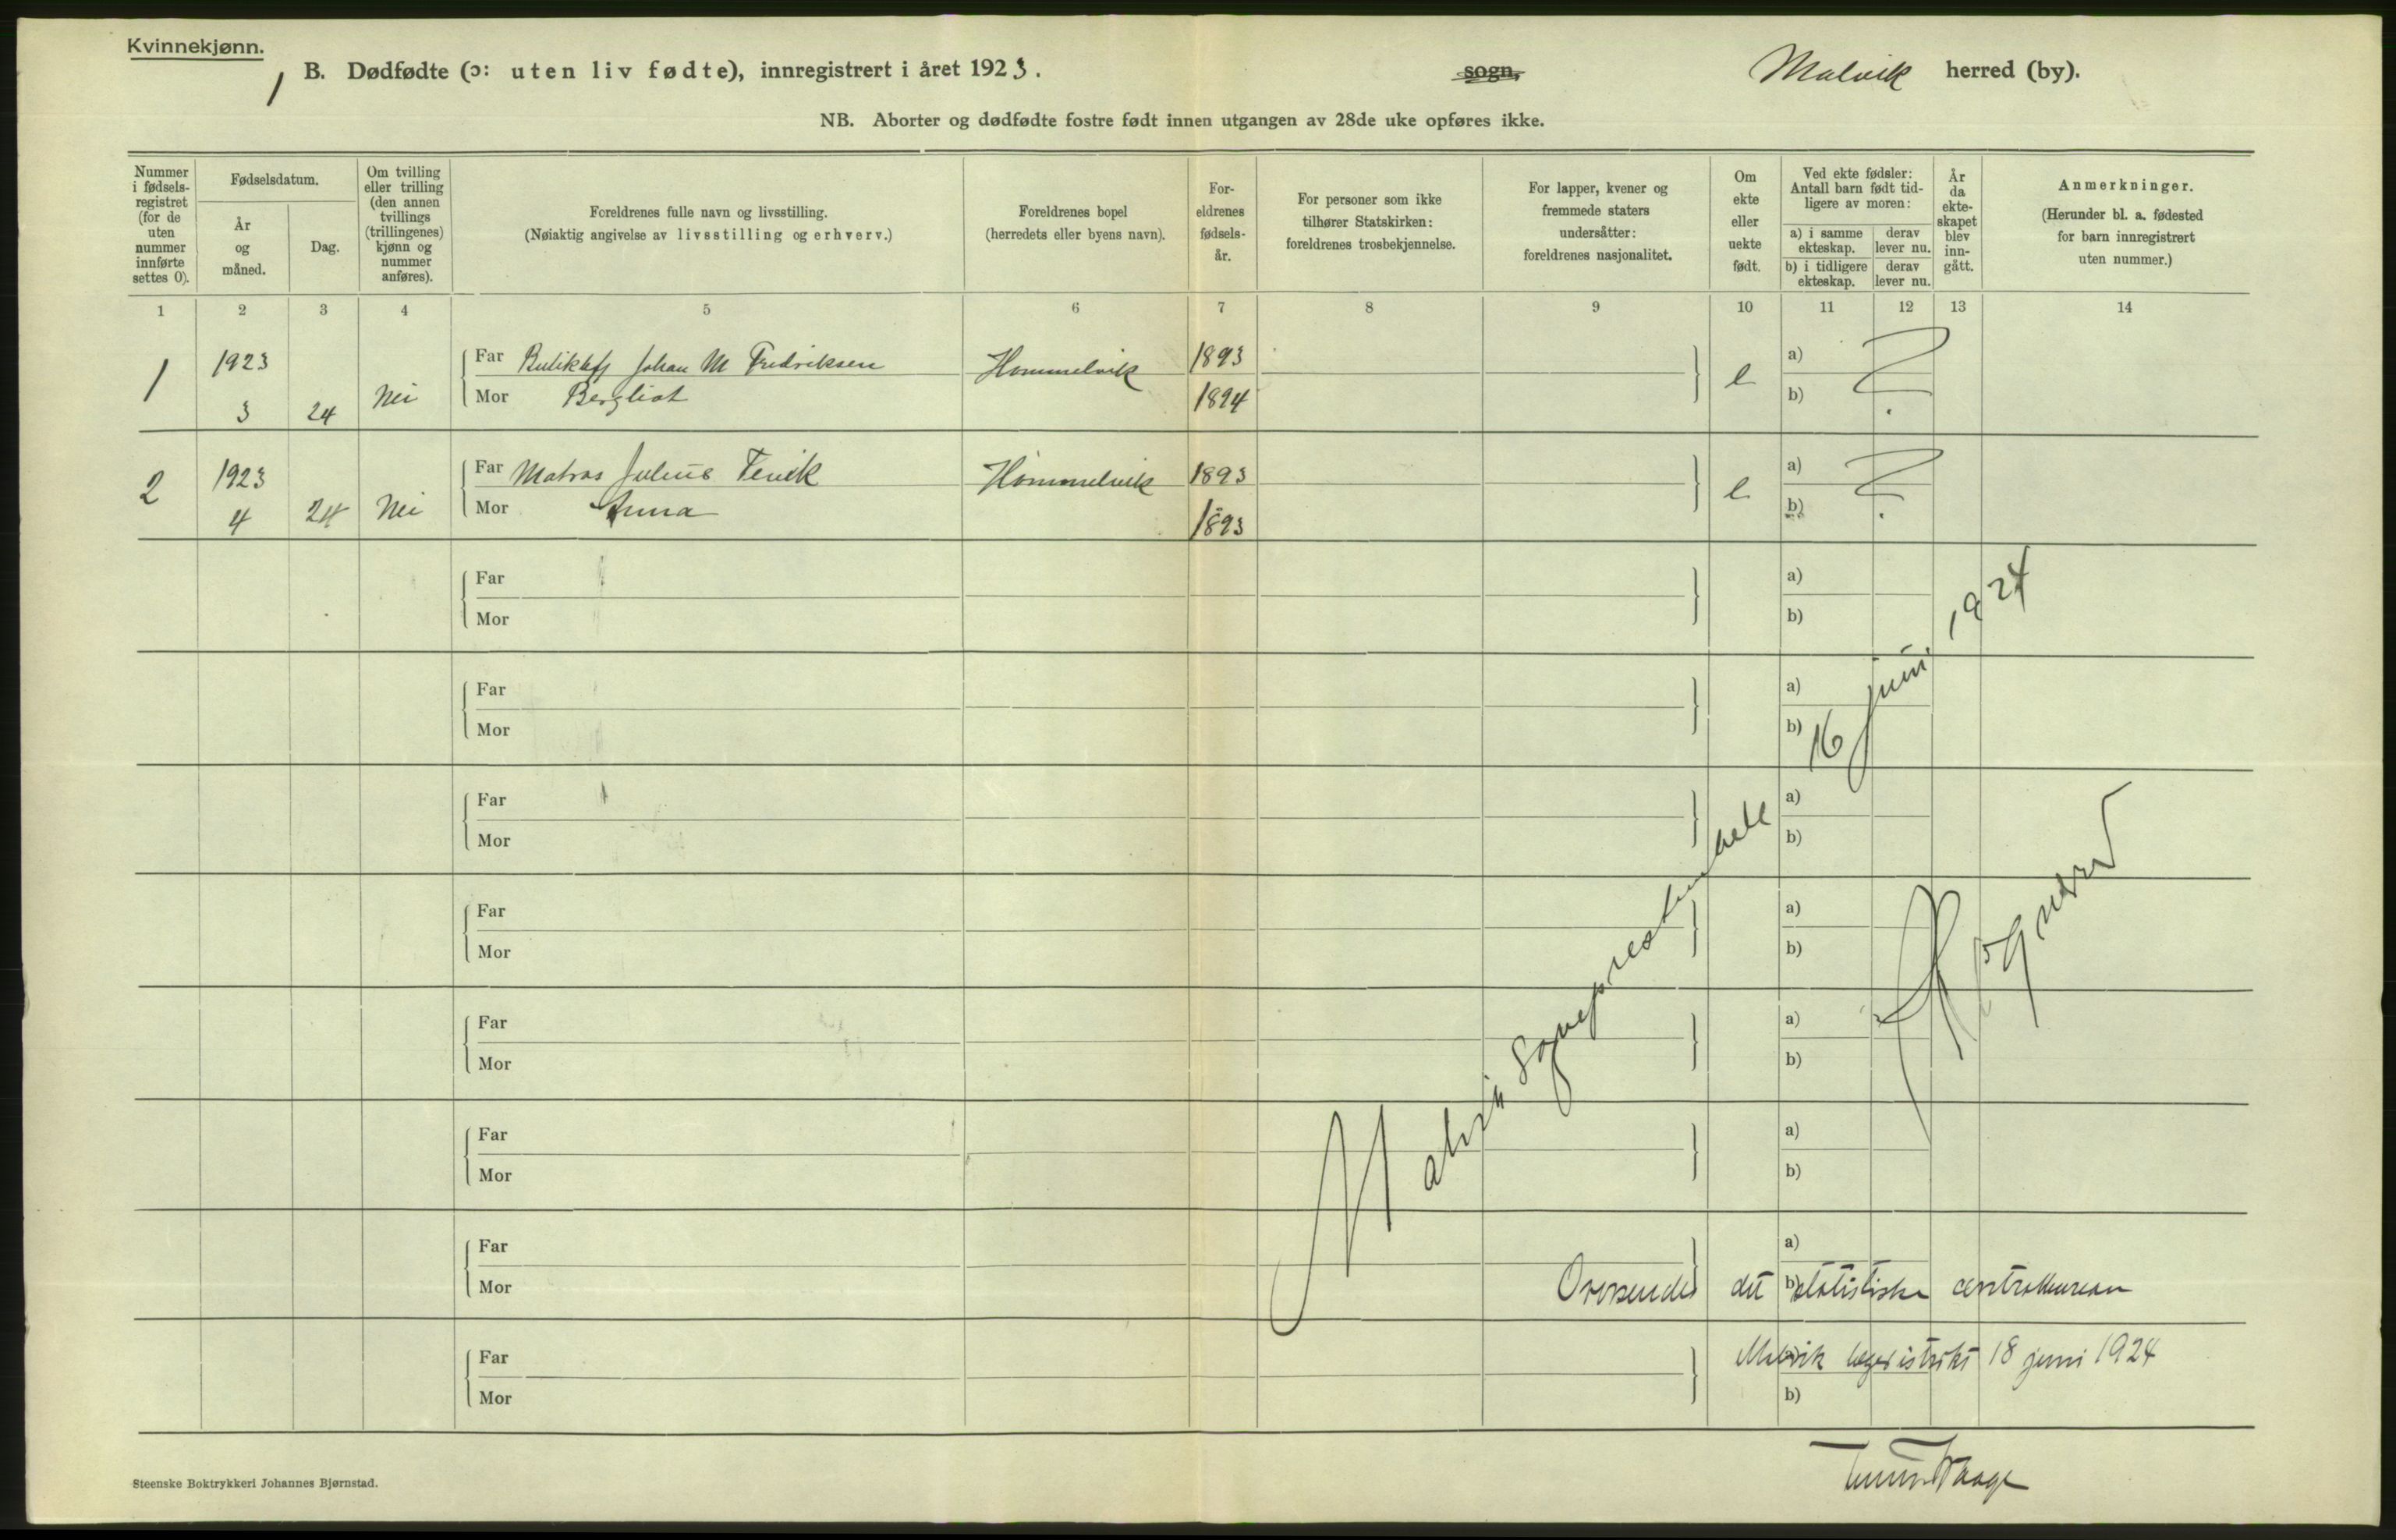 Kvinnekjønn.
1 B. Dødfødte (ɔ: uten liv fødte), innregistrert i året 1923. sogn, Malvik herred (by).
NB. Aborter og dødfødte fostre født innen utgangen av 28de uke opføres ikke.
Nummer i fødselsregistret (for de uten nummer innførte settes 0).
Fødselsdatum.
År og måned.
Dag.
Om tvilling eller trilling (den annen tvillings (trillingenes) kjønn og nummer anføres).
Foreldrenes fulle navn og livsstilling.
(Nøiaktig angivelse av livsstilling og erhverv.)
Foreldrenes bopel
(herredets eller byens navn).
For-
eldrenes
fødsels-
år.
For personer som ikke
tilhører Statskirken:
foreldrenes trosbekjennelse.
For lapper, kvener og
fremmede staters
undersåtter:
foreldrenes nasjonalitet.
Om
ekte
eller
uekte
født.
Ved ekte fødsler:
Antall barn født tid-
ligere av moren:
a) i samme ekteskap. derav lever nu.
b) i tidligere ekteskap. derav lever nu.
År da ekte-
skapet
blev
inn-
gått.
Anmerkninger.
(Herunder bl. a. fødested
for barn innregistrert
uten nummer.)
1 2 3 4 5 6 7 8 9 10 11 12 13 14
1 1923 Far Johan M Fredriksen Hommelvik 1893 e a) ?
3 24 Nei Mor Bergliot 1894 b)
2 1923 Far Matros Julius Hommelvik 1893 e a) ?
4 24 Nei Mor Anna 1893 b)
Far a)
Mor b)
Far a)
Mor b)
Far a)
Mor b)
Far a)
Mor b)
Far a)
Mor b)
Far a)
Mor b)
Far a)
Mor b)
Far
Mor b)
Malvik sogneprestembede 16 juni 1924
Oversendes det statistiske centralbureau
Malvik legedistrikt 18 juni 1924
Steenske Boktrykkeri Johannes Bjørnstad.